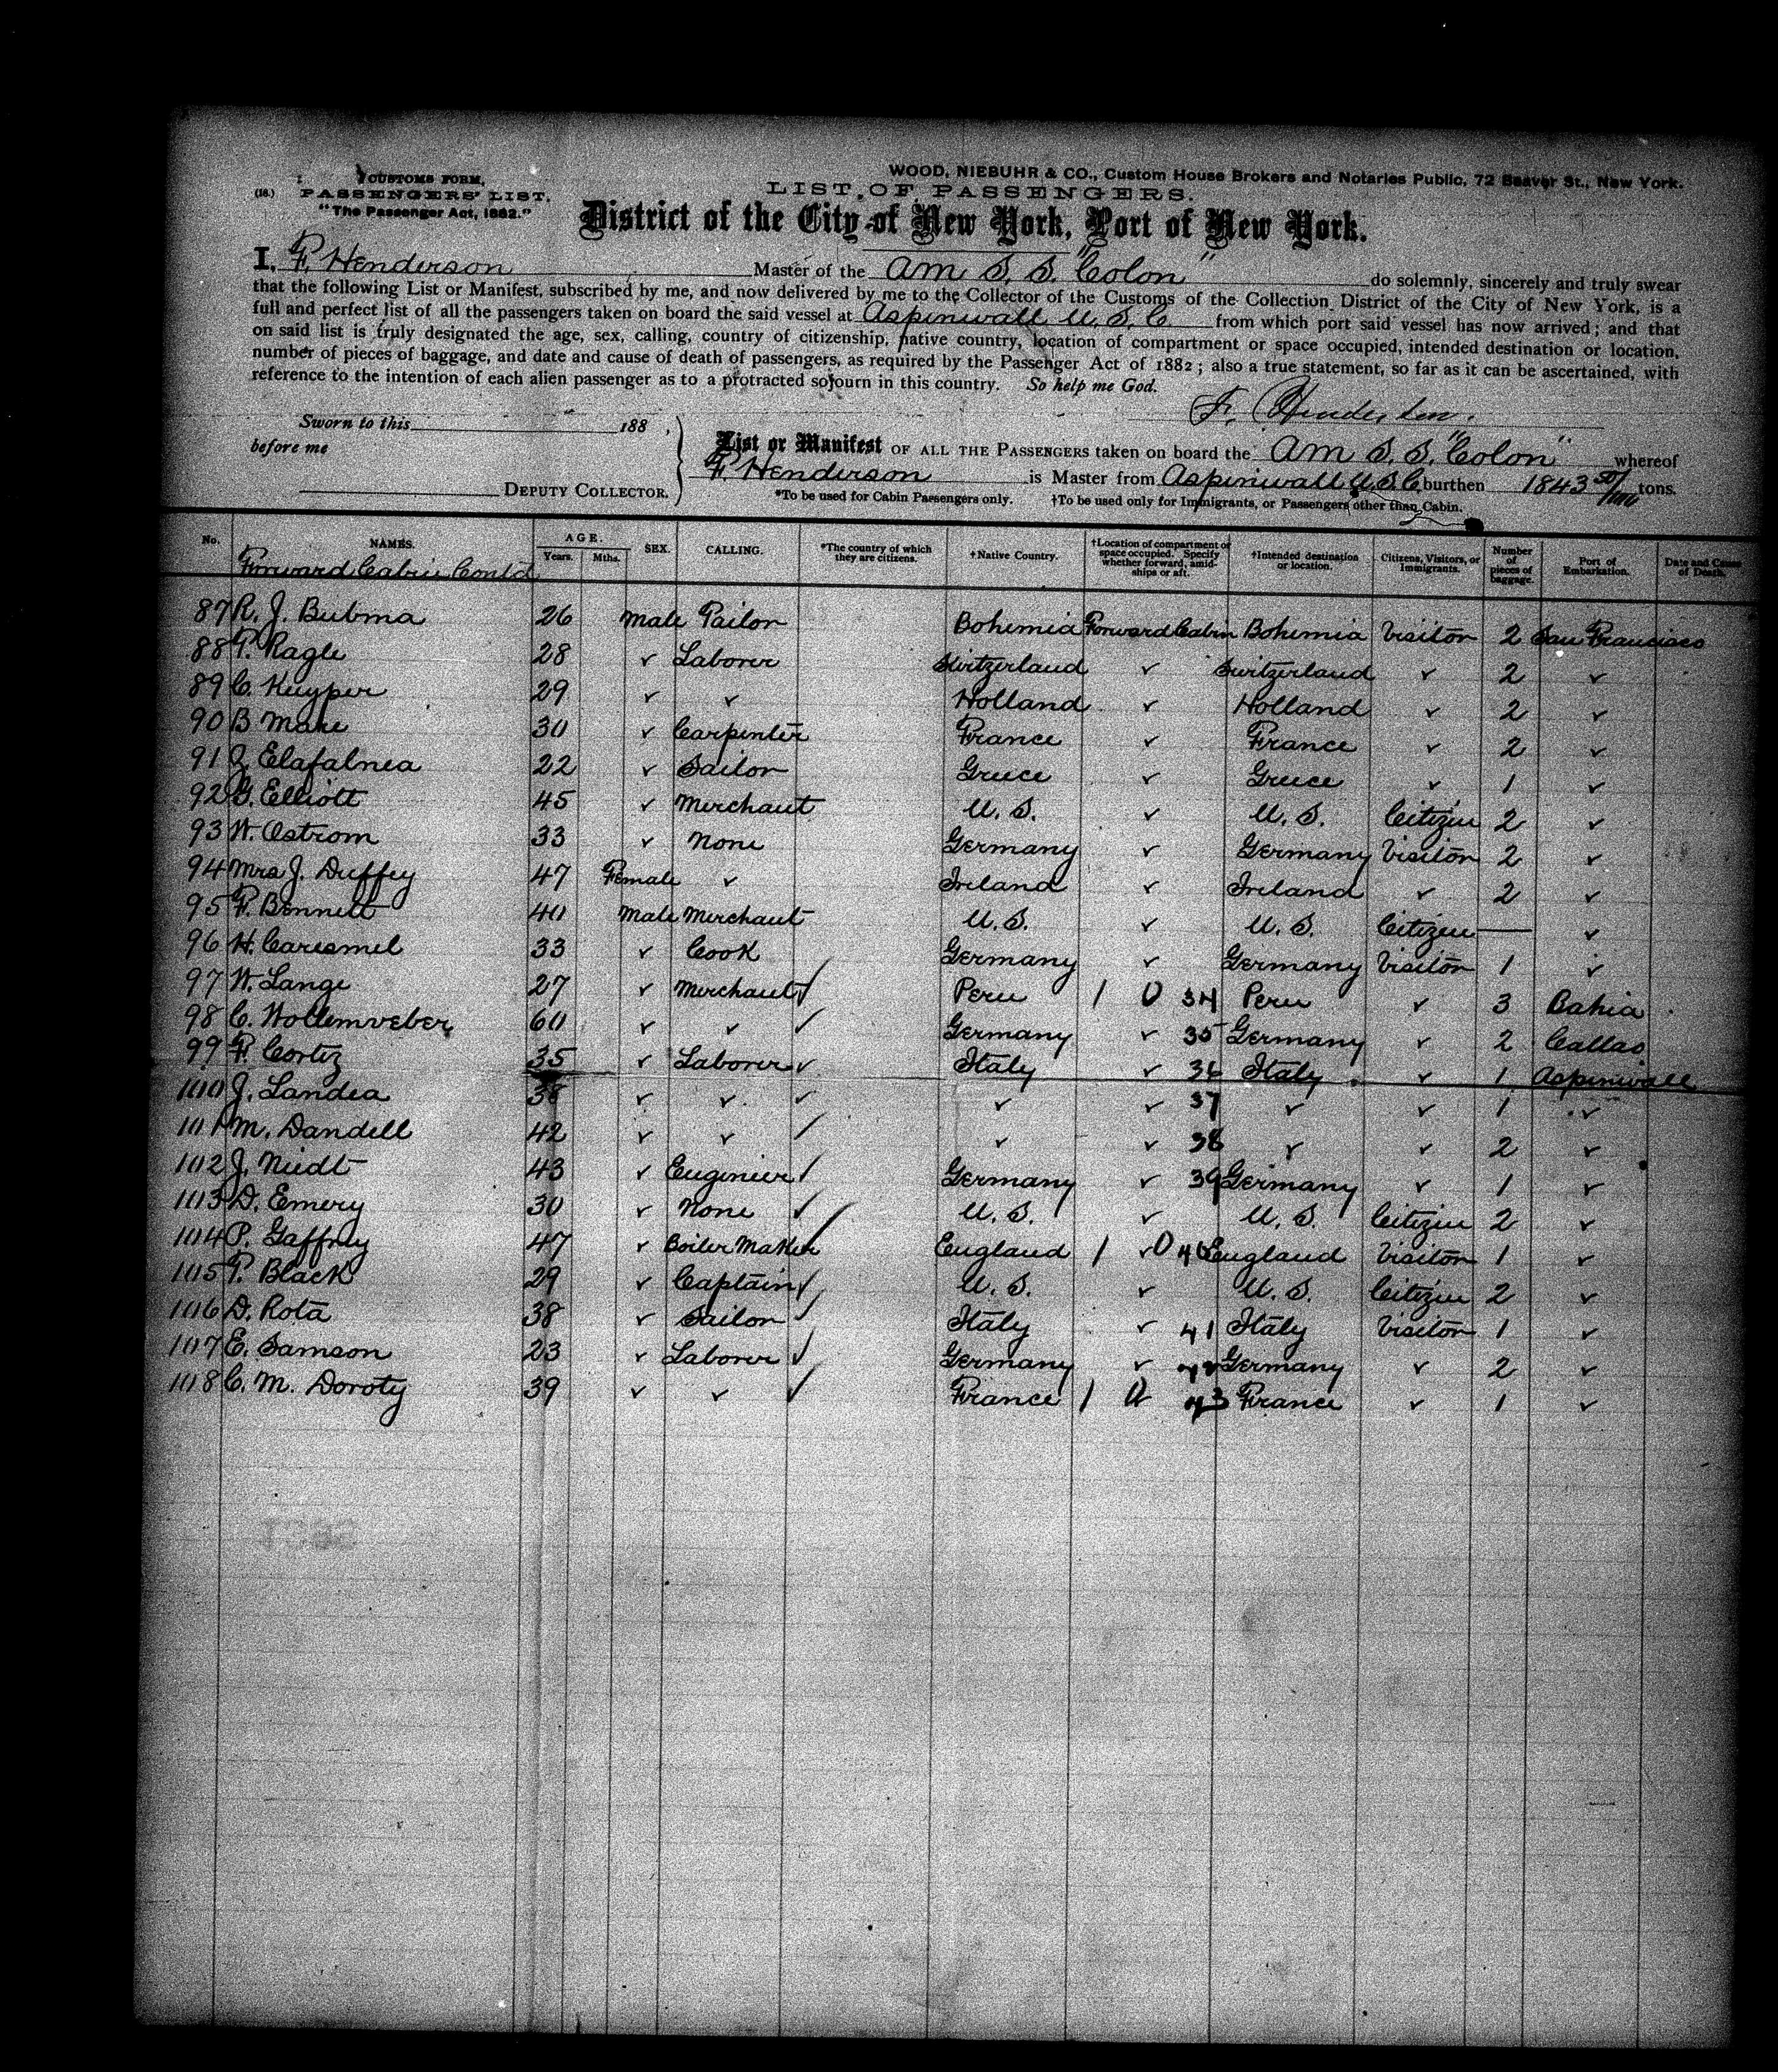 WOOD, NIEBUHR & CO., Custom House Brokers and Notaries Public, 72 Beaver St., New York.
(16.) CUSTOMS FORM,
PASSENGERS' LIST.
"The Passenger Act, 1882."
LIST OF PASSENGERS.
District of the City of New York, Port of New York.
I, F. Henderson Master of the Am S. S. "Colon" do solemnly, sincerely and truly swear
that the following List or Manifest, subscribed by me, and now delivered by me to the Collector of the Customs of the Collection District of the City of New York, is a
full and perfect list of all the passengers taken on board the said vessel at Aspinwall U. S. C. from which port said vessel has now arrived; and that
on said list is truly designated the age, sex, calling, country of citizenship, native country, location of compartment or space occupied, intended destination or location,
number of pieces of baggage, and date and cause of death of passengers, as required by the Passenger Act of 1882; also a true statement, so far as it can be ascertained, with
reference to the intention of each alien passenger as to a protracted sojourn in this country. So help me God.
F. Henderson.
Sworn to this 188 ,
before me
DEPUTY COLLECTOR.
List or Manifest OF ALL THE PASSENGERS taken on board the Am S. S. "Colon" whereof
F. Henderson is Master from Aspinwall U.S.C. burthen 1843 50/100 tons.
*To be used for Cabin Passengers only. †To be used only for Immigrants, or Passengers other than Cabin.
No. NAMES. AGE. Years. Mths. SEX. CALLING. *The country of which they are citizens. †Native Country. †Location of compartment or space occupied. Specify whether forward, amidships or aft. †Intended destination or location. Citizens, Visitors, or Immigrants. Number of pieces of baggage. Port of Embarkation. Date and Cause of Death.
Forward Cabin Cont'd
87 R. J. Bubma 26 Male Tailor Bohemia Forward Cabin Bohemia Visitor 2 San Francisco
88 T. Ragle 28 ✓ Laborer Switzerland ✓ Switzerland ✓ 2 ✓
89 C. Kuyper 29 ✓ ✓ Holland ✓ Holland ✓ 2 ✓
90 B Mare 30 ✓ Carpenter France ✓ France ✓ 2 ✓
91 J. Elafalnea 22 ✓ Sailor Greece ✓ Greece ✓ 1 ✓
92 G. Elliott 45 ✓ Merchant U. S. ✓ U. S. Citizen 2 ✓
93 W. Ostrom 33 ✓ None Germany ✓ Germany Visitor 2 ✓
94 Mrs J. Duffey 47 Female ✓ Ireland ✓ Ireland ✓ 2 ✓
95 F. Bennett 40 Male Merchant U. S. ✓ U. S. Citizen — ✓
96 H. Caresmel 33 ✓ Cook Germany ✓ Germany Visitor 1 ✓
97 W. Lange 27 ✓ Merchant ✓ Peru 1 0 34 Peru ✓ 3 Bahia
98 C. Wollemveber 60 ✓ ✓ ✓ Germany ✓ 35 Germany ✓ 2 Callao
99 F. Cortez 35 ✓ Laborer ✓ Italy ✓ 36 Italy ✓ 1 Aspinwall
100 J. Landea 38 ✓ ✓ ✓ ✓ ✓ 37 ✓ ✓ 1 ✓
101 M. Dandell 42 ✓ ✓ ✓ ✓ ✓ 38 ✓ ✓ 2 ✓
102 J. Niedt 43 ✓ Engineer ✓ Germany ✓ 39 Germany ✓ 1 ✓
103 D. Emery 30 ✓ None ✓ U. S. ✓ U. S. Citizen 2 ✓
104 P. Gaffney 47 ✓ Boiler Maker ✓ England 1 ✓ 0 40 England Visitor 1 ✓
105 T. Black 29 ✓ Captain ✓ U. S. ✓ U. S. Citizen 2 ✓
106 D. Rota 38 ✓ Sailor ✓ Italy ✓ 41 Italy Visitor 1 ✓
107 E. Samson 23 ✓ Laborer ✓ Germany ✓ 42 Germany ✓ 2 ✓
108 C. M. Doroty 39 ✓ ✓ ✓ France 1 0 43 France ✓ 1 ✓